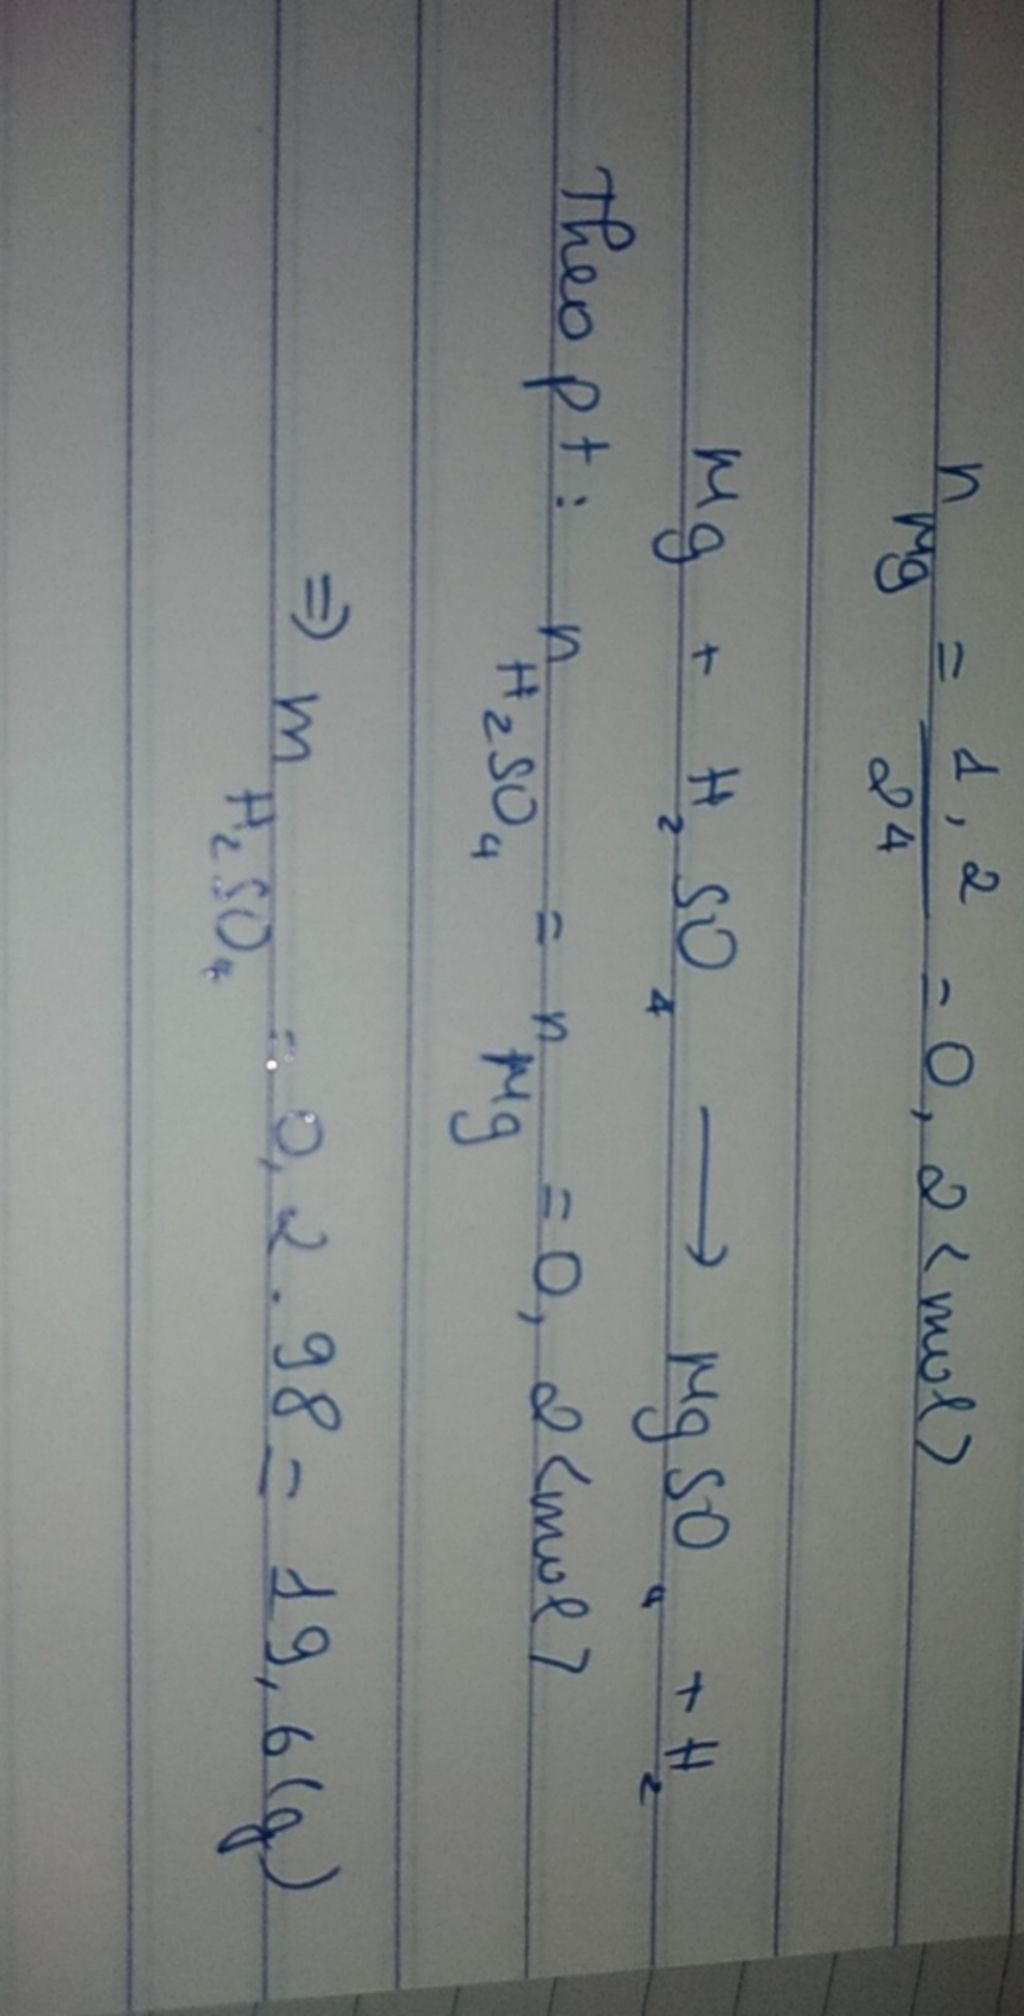 n Mg = 1,2 / 24 = 0,2 <mol>
Mg + H2SO4 → MgSO4 + H2
Theo pt: n H2SO4 = n Mg = 0,2 <mol>
⇒ m H2SO4 = 0,2 . 98 = 19,6 (g)